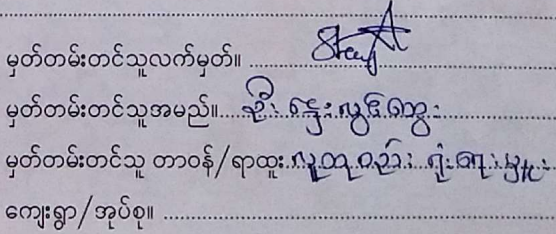 မှတ်တမ်းတင်သူလက်မှတ်။
မှတ်တမ်းတင်သူအမည်။ ဦး ဌေးလွင်ထွေး
မှတ်တမ်းတင်သူ တာဝန်/ရာထူး လူထုစည်းရုံးရေးမှူး
ကျေးရွာ/အုပ်စု။